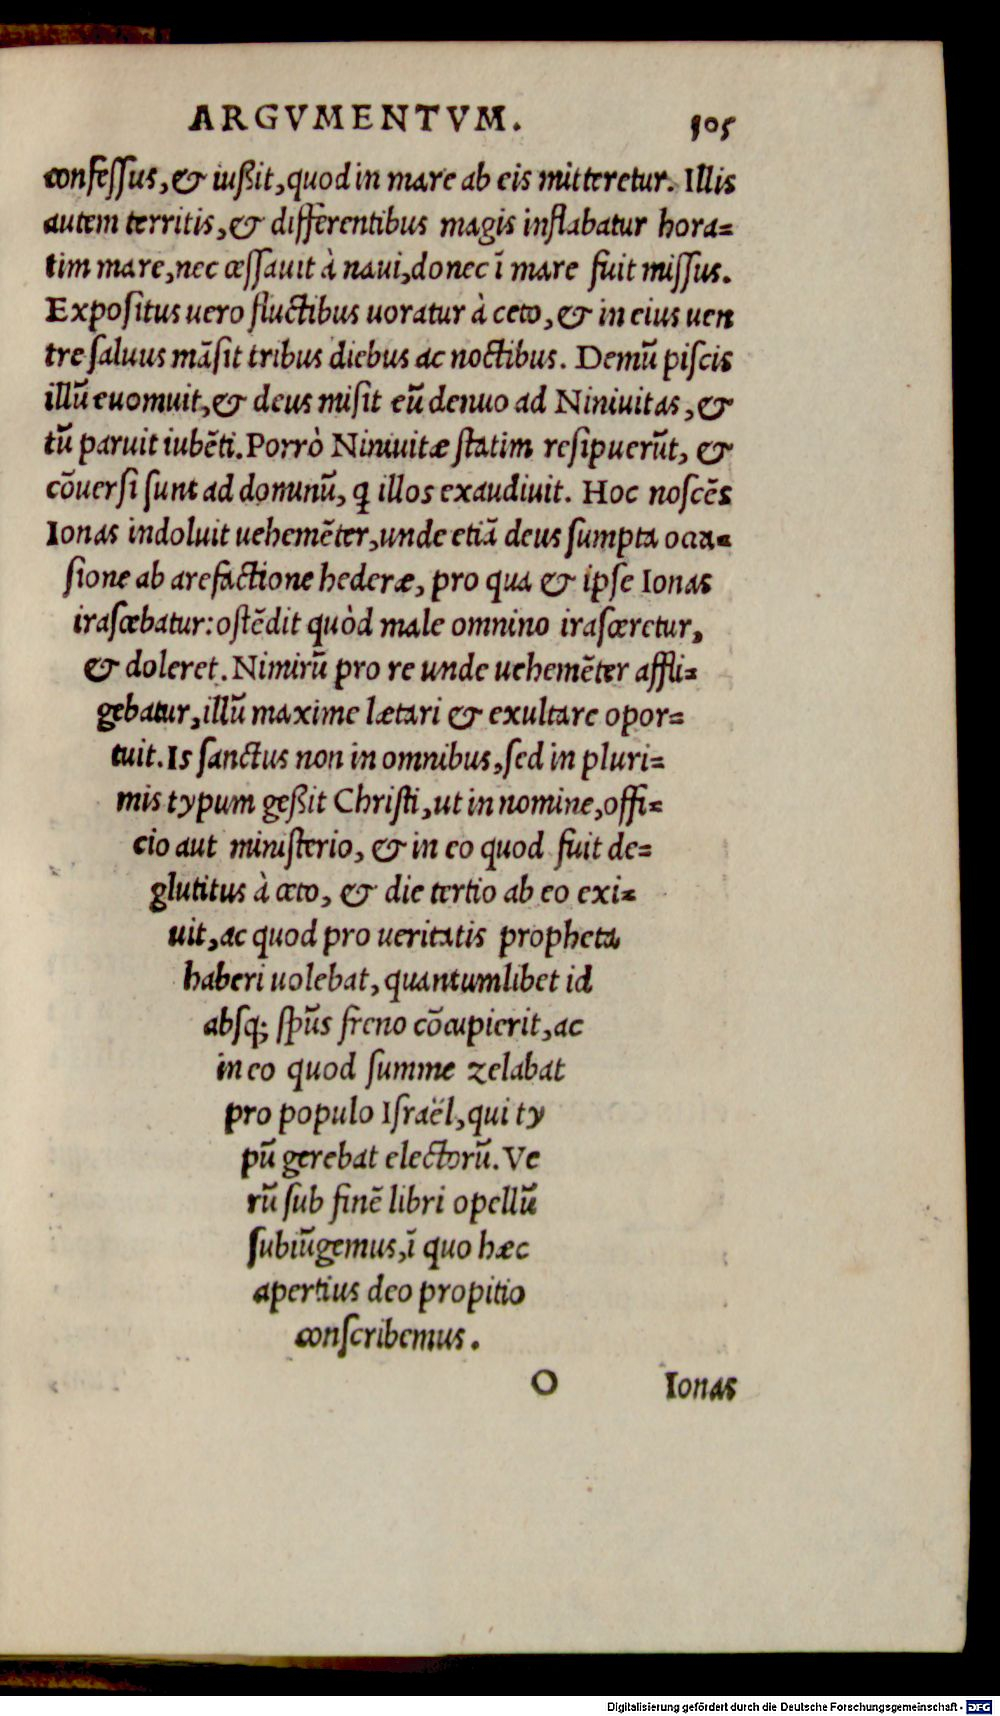 ARGVMENTVM. 105
confeſſus, & iußit, quod in mare ab eis mitteretur. Illis
autem territis, & differentibus magis inflabatur hora=
tim mare, nec ceſſauit à naui, donec ī mare fuit miſſus.
Expoſitus uero fluctibus uoratur à ceto, & in eius uen
tre ſaluus māſit tribus diebus ac noctibus. Demū piſcis
illū euomuit, & deus miſit eū denuo ad Niniuitas, &
tū paruit iubēti. Porrò Niniuitæ ſtatim reſipuerūt, &
cōuerſi ſunt ad dominū, ꝗ illos exaudiuit. Hoc noſcēs
Ionas indoluit uehemēter, unde etiā deus ſumpta occa=
ſione ab arefactione hederæ, pro qua & ipſe Ionas
iraſcebatur: oſtēdit quòd male omnino iraſceretur,
& doleret. Nimirū pro re unde uehemēter affli=
gebatur, illū maxime lætari & exultare opor=
tuit. Is ſanctus non in omnibus, ſed in pluri=
mis typum geßit Chriſti, ut in nomine, offi=
cio aut miniſterio, & in eo quod fuit de=
glutitus à ceto, & die tertio ab eo exi=
uit, ac quod pro ueritatis propheta
haberi uolebat, quantumlibet id
abſq; ſpūs freno cōcupierit, ac
in eo quod ſumme zelabat
pro populo Iſraël, qui ty
pū gerebat electorū. Ve
rū ſub finē libri opellū
ſubiūgemus, ī quo hæc
apertius deo propitio
conſcribemus.
O Ionas
Digitalisierung gefördert durch die Deutsche Forschungsgemeinschaft - DFG